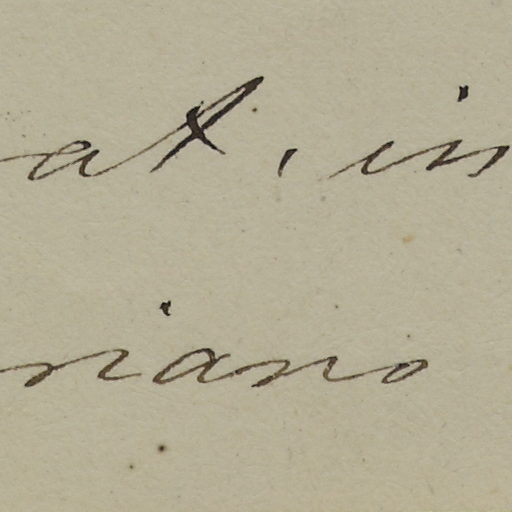 at, in
riano